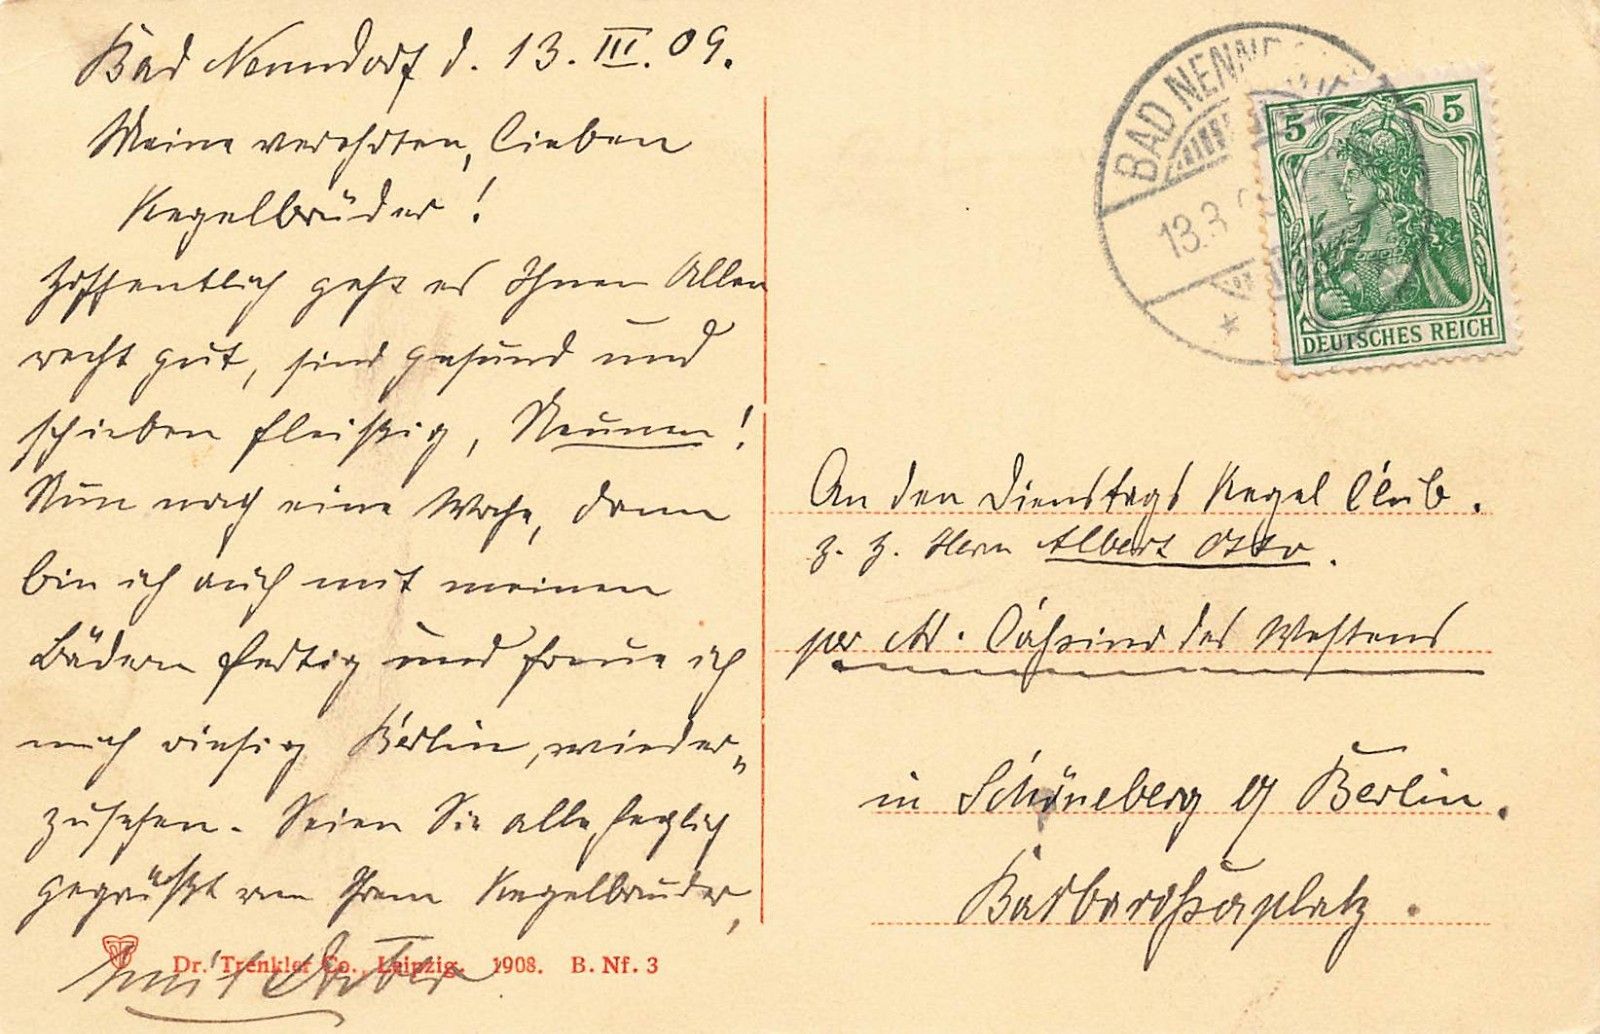 Bad Nenndorf d. 13. III. 09.
Meine verehrten, lieben
Kegelbrüder!
Hoffentlich geht es Ihnen Allen
recht gut, sind gesund und
schieben fleißig, Neunen!
Nun noch eine Woche, dann
bin ich auch mit meinen
Bädern fertig und freue ich
mich riesig Berlin, wieder„
zusehen. Seien Sie alle herzlich
gegrüßt von Ihrem Kegelbruder,
Emil
Dr. Trenkler Co., Leipzig. 1908. B. Nf. 3
BAD NENND
13.3.
5 5
DEUTSCHES REICH
An den Dienstags Kegel Club.
z. H. Herrn Albert Otto.
per Ad. Casino des Westens
in Schöneberg b/ Berlin.
Barbarossaplatz.